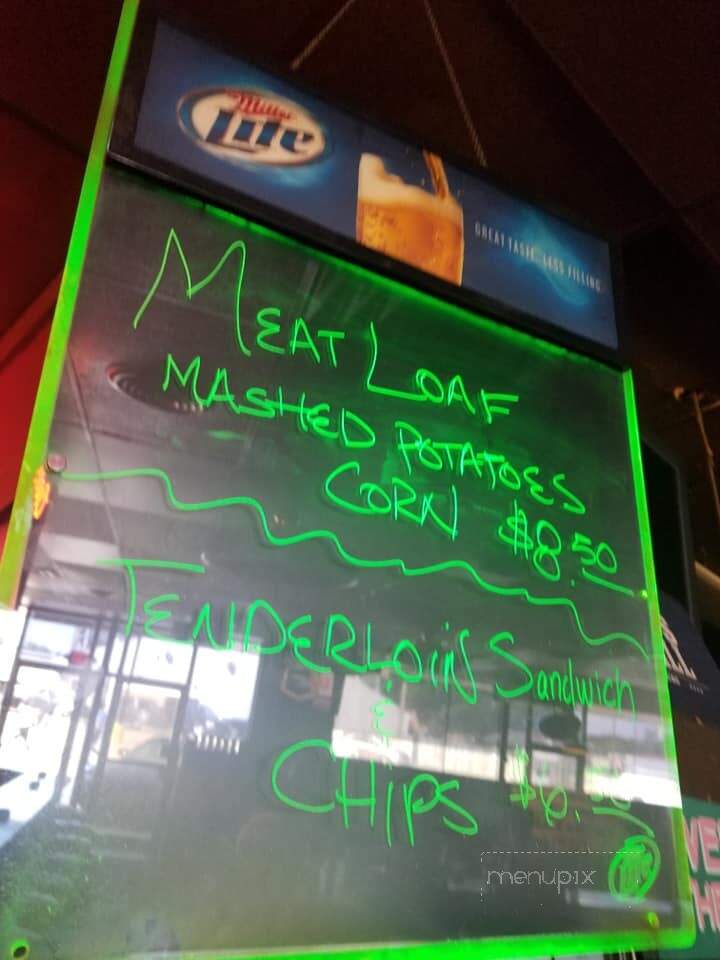 Miller
Lite
GREAT TASTE. LESS FILLING.
MEAT LOAF
MASHED POTATOES
CORN $8.50
TENDERLOIN Sandwich
&
CHIPS $6.50
menupix